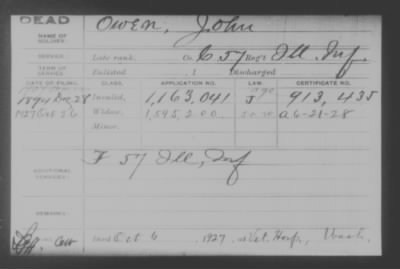 DEAD
NAME OF SOLDIER: Owen, John
SERVICE: Late rank, Co. C 57 Reg't Ill. Inf.
TERM OF SERVICE: Enlisted , 1 Discharged
DATE OF FILING. CLASS. APPLICATION NO. LAW. CERTIFICATE NO.
1894 Dec 28 Invalid, 1,163,041 913,435
1927 Oct 26 Widow, 1,595,200. A 6-21-28
Minor,
ADDITIONAL SERVICES: F 57 Ill, Inf
REMARKS:
Died Oct 6, 1927, at Vet. Hosp.,